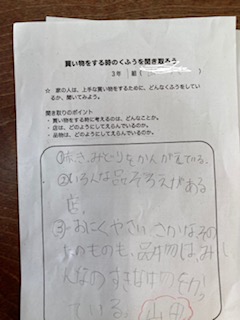 買い物をする時のくふうを聞き取ろう
3年 組(
☆ 家の人は、上手な買い物をするために、どんなくふうをしているか、聞いてみよう。
聞き取りのポイント
・買い物をする時に考えるのは、どんなことか。
・店は、どのようにしてえらんでいるのか。
・品物は、どのようにしてえらんでいるのか。
①赤き、みどりをかんがえている。
②いろんな品ぞろえがある
店。
③おにくやさい、さかな、その
品物は、み
んなのすきなものをかっ
ている。